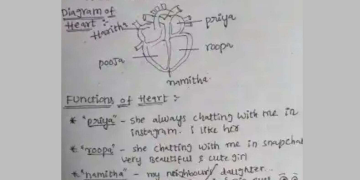 Diagram of
Heart :-
Haritha
priya
pooja
roopa
namitha
Functions of Heart :-
* "priya" - she always chatting with me in
instagram. I like her
* "roopa" - she chatting with me in snapchat
very Beautiful & cute girl
* "namitha" - my neighbour's daughter..